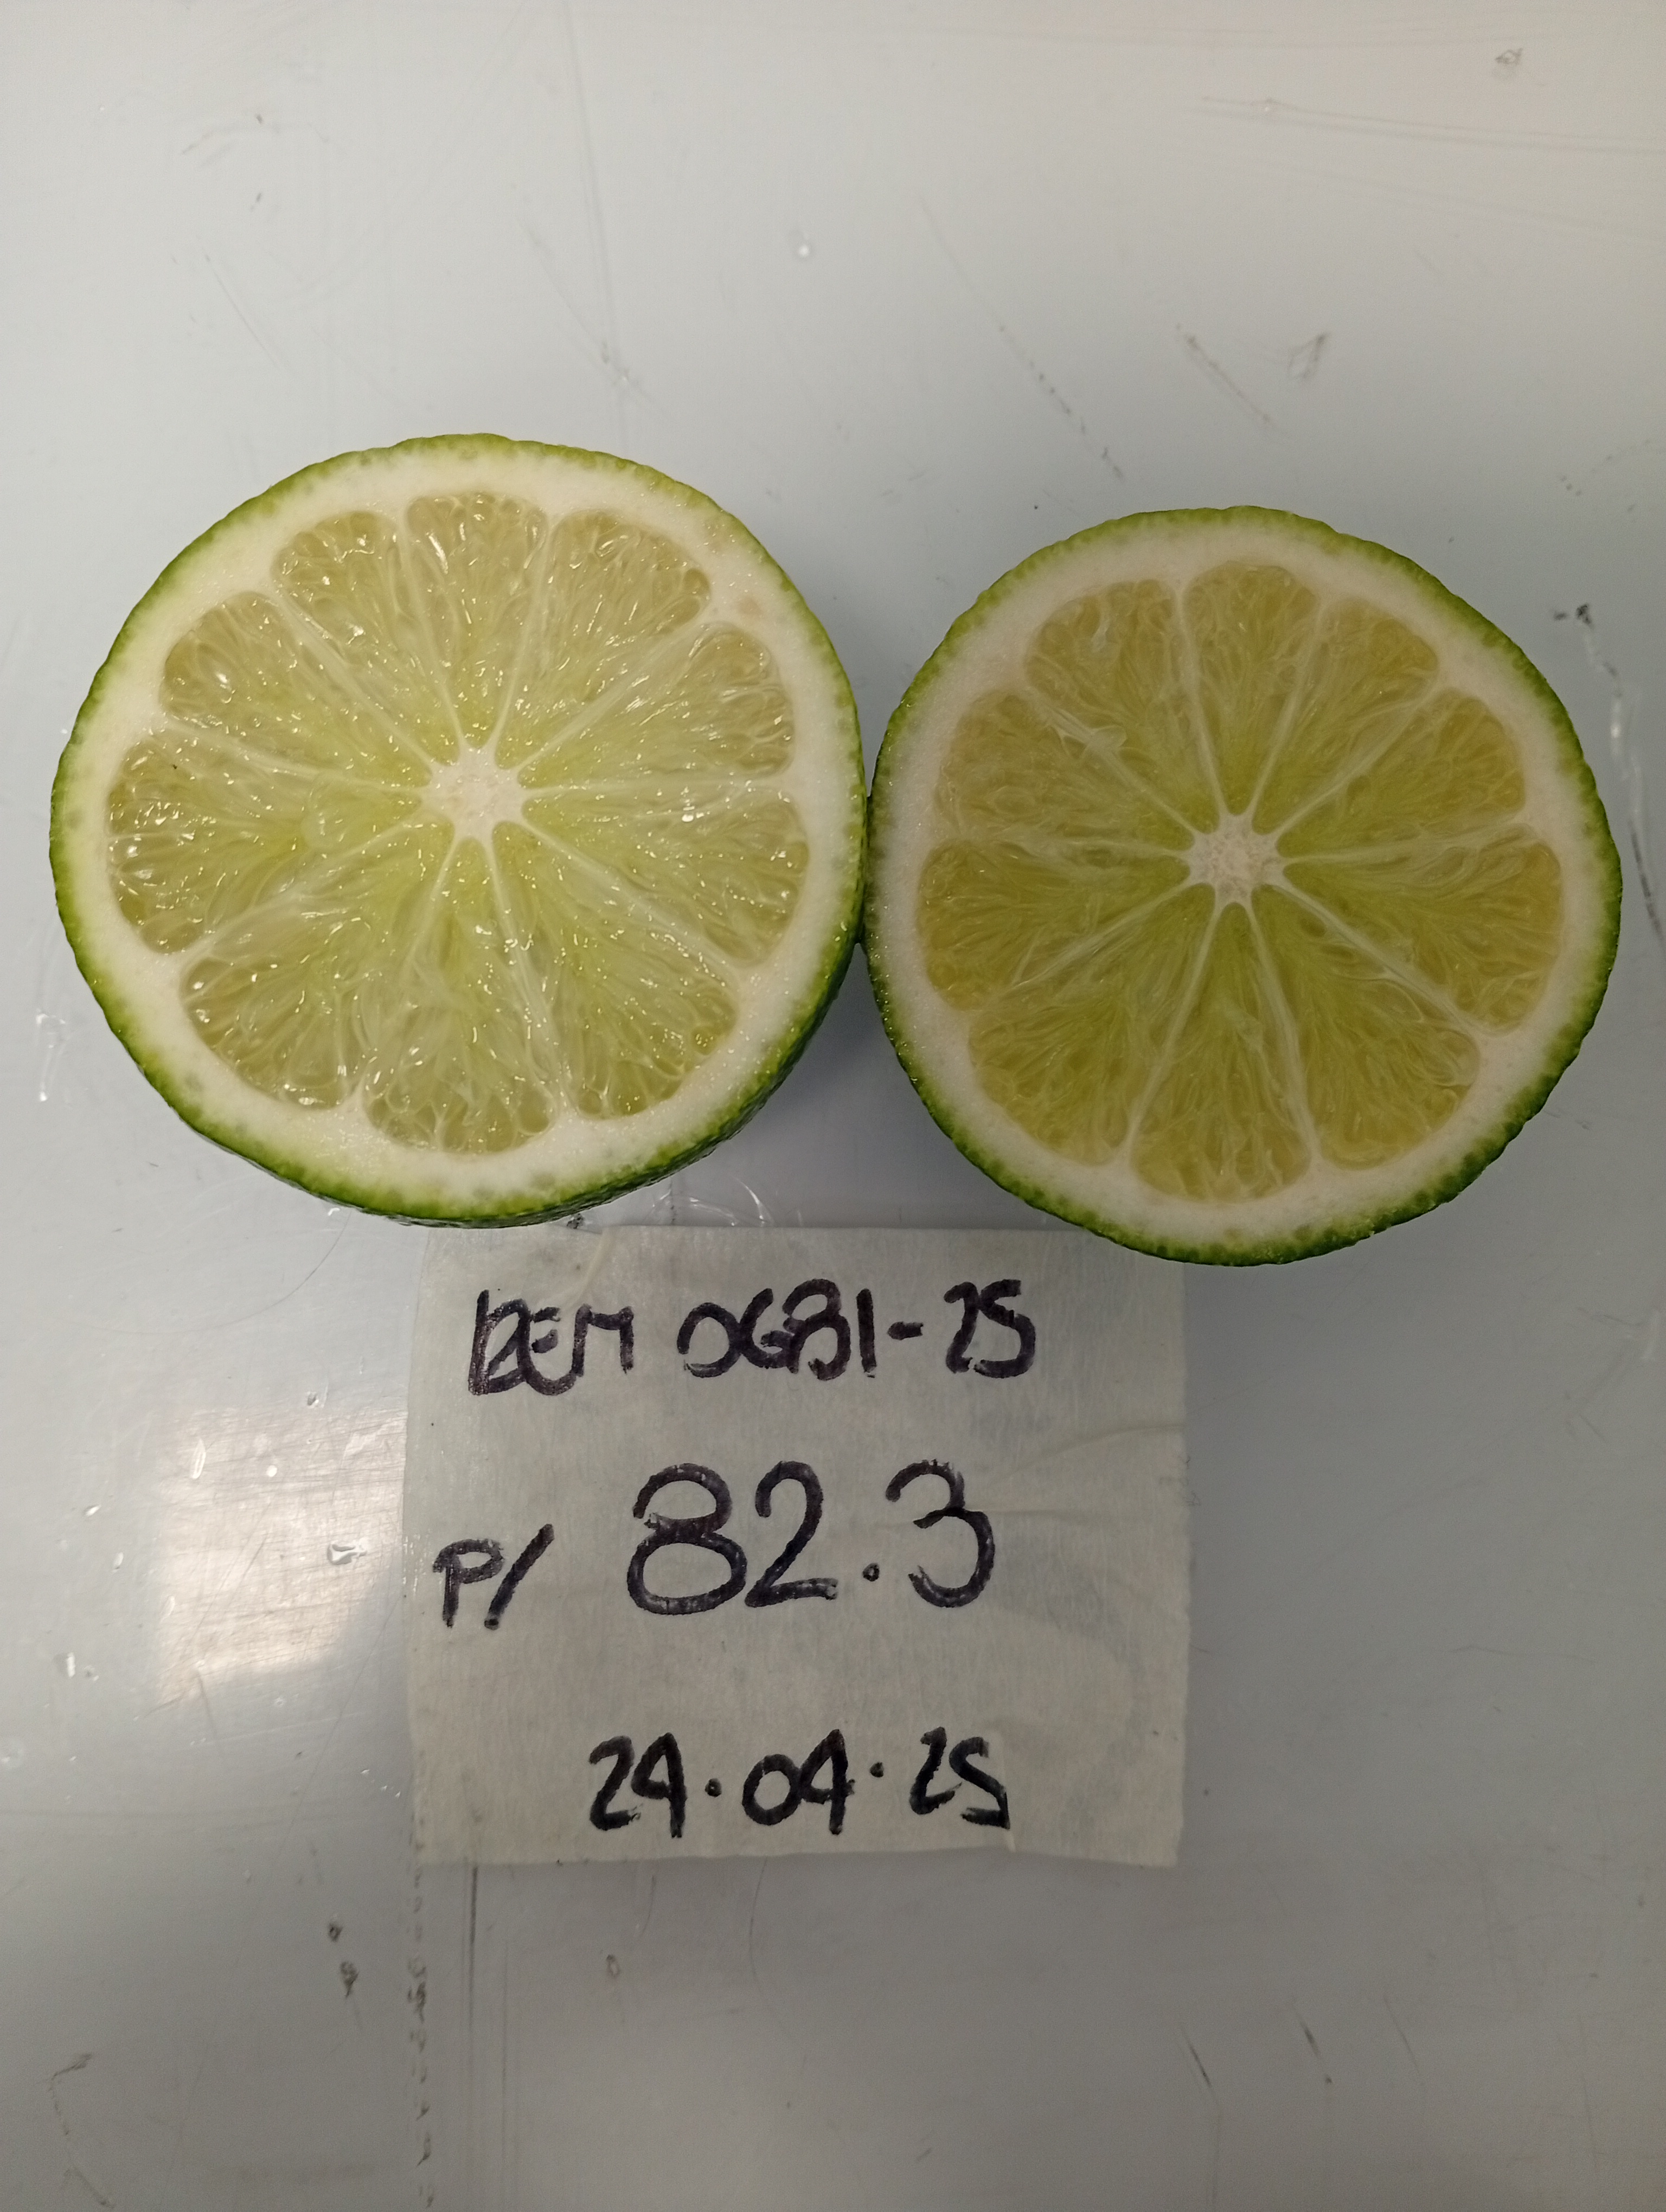 REM 0681-25
P/ 82.3
24.04.25